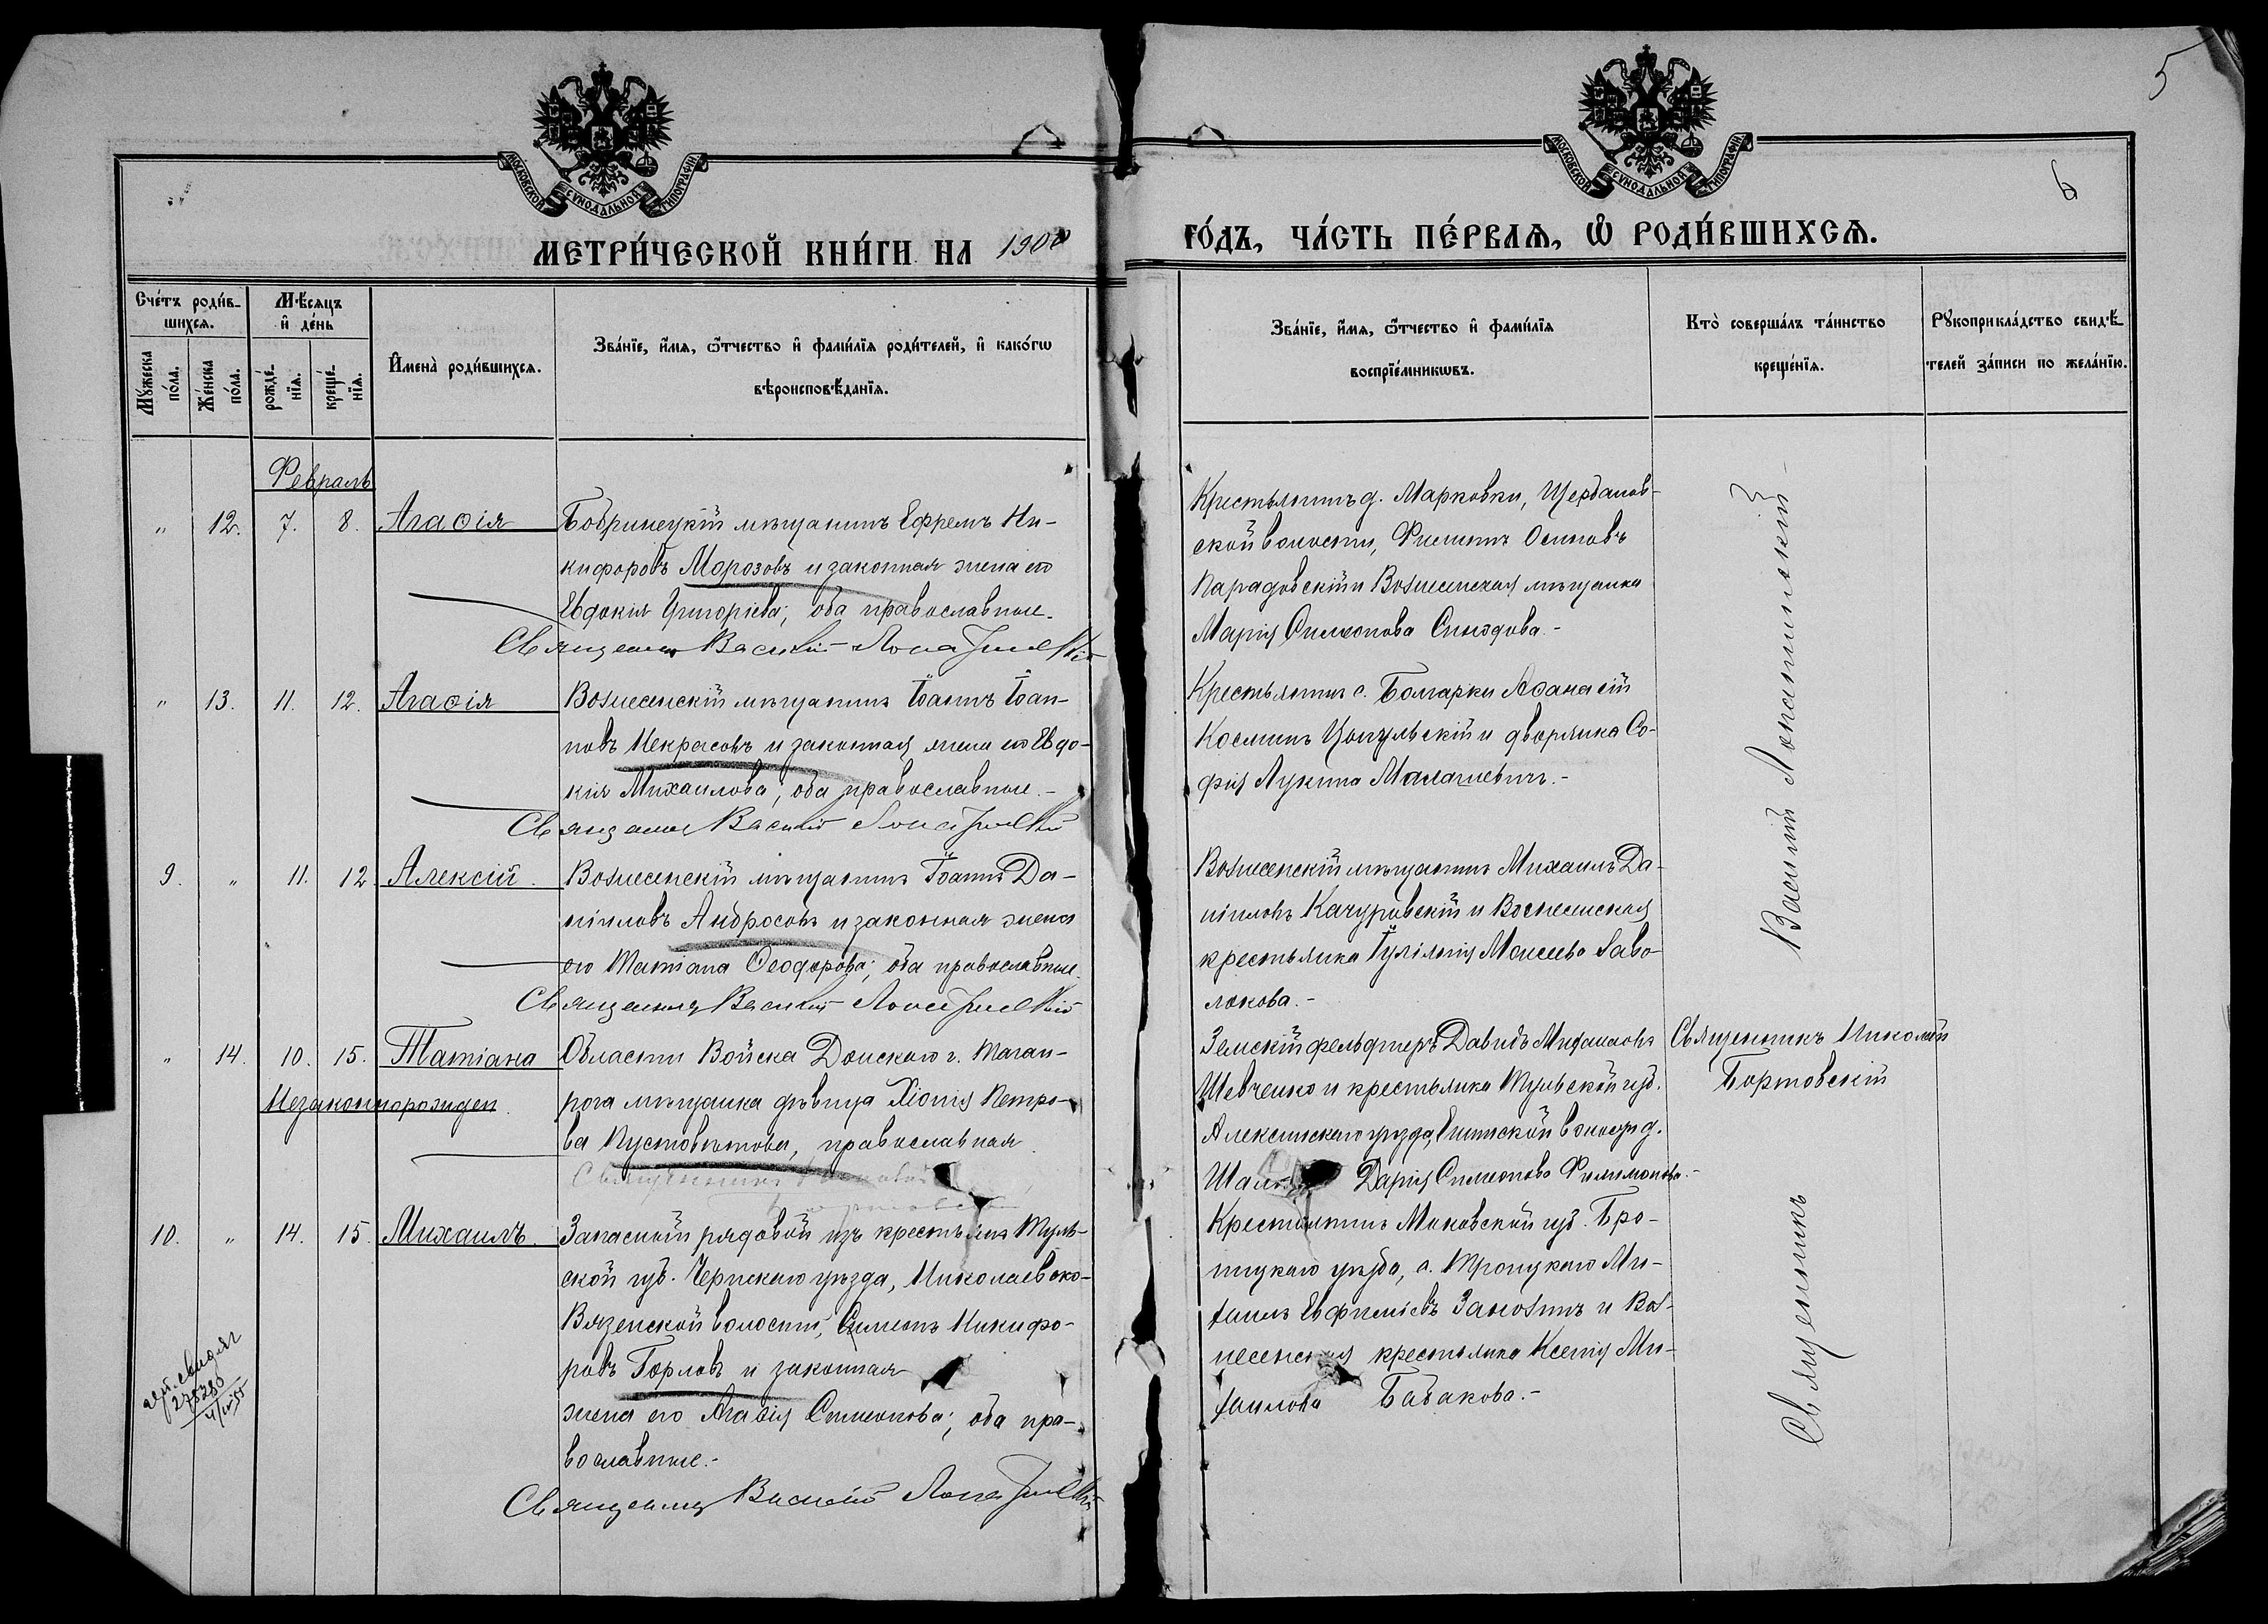 5
6
МОСКОВСКОЙ СѴНОДАЛЬНОЙ ТИПОГРАФІИ
МОСКОВСКОЙ СѴНОДАЛЬНОЙ ТИПОГРАФІИ
МЕТРИ́ЧЕСКОЙ КНИ́ГИ НА 1900
ГО́ДЪ, ЧА́СТЬ ПЕ́РВАѦ, Ѡ҆ РОДИ́ВШИХСѦ.
Сче́тъ роди́в-
шихсѧ.
Мѣ́сѧцъ
и҆ де́нь
Мꙋ́жеска
по́ла.
Же́нска
по́ла.
рожде́-
нїѧ.
креще́-
нїѧ.
И҆мена̀ роди́вшихсѧ.
Зва́нїе, и҆́мѧ, ѻ҆́тчество и҆ фами́лїѧ роди́телей, и҆ како́гѡ
вѣроисповѣ́данїѧ.
Зва́нїе, и҆́мѧ, ѻ҆́тчество и҆ фами́лїѧ
воспрїе́мникѡвъ.
Кто̀ соверша́лъ та́инство
креще́нїѧ.
Рꙋкоприкла́дство свидѣ́-
телей за́писи по жела́нїю.
Февраль
" 12. 7. 8. Агаѳія
Бобринецкій мѣщанинъ Ефремъ Ни-
кифоровъ Морозовъ и законная жена его
Евдокія Григоріева; оба православные.
Священникъ Василій Лопатинскій
Крестьянинъ д. Марковки, Щербанов-
ской волости, Филиппъ Осиповъ
Парадовскій и Вознесенская мѣщанка
Марія Симеонова
" 13. 11. 12. Агаѳія
Вознесенскій мѣщанинъ Іоаннъ Іоан-
новъ Некрасовъ и законная жена его Евдо-
кія Михаилова; оба православные.-
Священникъ Василій Лопатинскій
Крестьянинъ с. Болгарки Аѳанасій
Косминъ и дворянка Со-
фія Лукина
9. " 11. 12 Алексій.
Вознесенскій мѣщанинъ Іоаннъ Да-
ніиловъ Андросовъ и законная жена
его Татіана Ѳеодорова; оба православные.
Священникъ Василій Лопатинскій
Вознесенскій мѣщанинъ Михаилъ Да-
ніиловъ Качуровскій и Вознесенская
крестьянка Іуліанія Моисеева Заво-
локова.-
Василій Лопатинскій
" 14. 10. 15. Татіана
Незаконнорожден.
Области Войска Донскаго г. Таган-
рога мѣщанка дѣвица Хіонія Петро-
ва Пустовѣтова, православная.
Священникъ Николай
Бортовскій
Земскій фельдшеръ Давидъ Михаиловъ
Шевченко и крестьянка Тульской губ.
Алексинскаго уѣзда, волости д.
Дарія Симеонова Филимонова.-
Священникъ Николай
Бортовскій
10. " 14. 15. Михаилъ.
Запасной рядовой изъ крестьянъ Туль-
ской губ. Чернскаго уѣзда, Николаевско-
Вяземской волости, Никифо-
ровъ Горловъ и законная
жена его Агаѳія Симеонова; оба пра-
вославные.-
Священникъ Василій Лопатинскій
Крестьянинъ Московской губ. Бро-
ницкаго уѣзда, с. Троицкаго Ми-
хаилъ Евфиміевъ и Воз-
несенская крестьянка Ксенія Ми-
хаилова Бабакова.-
Священникъ